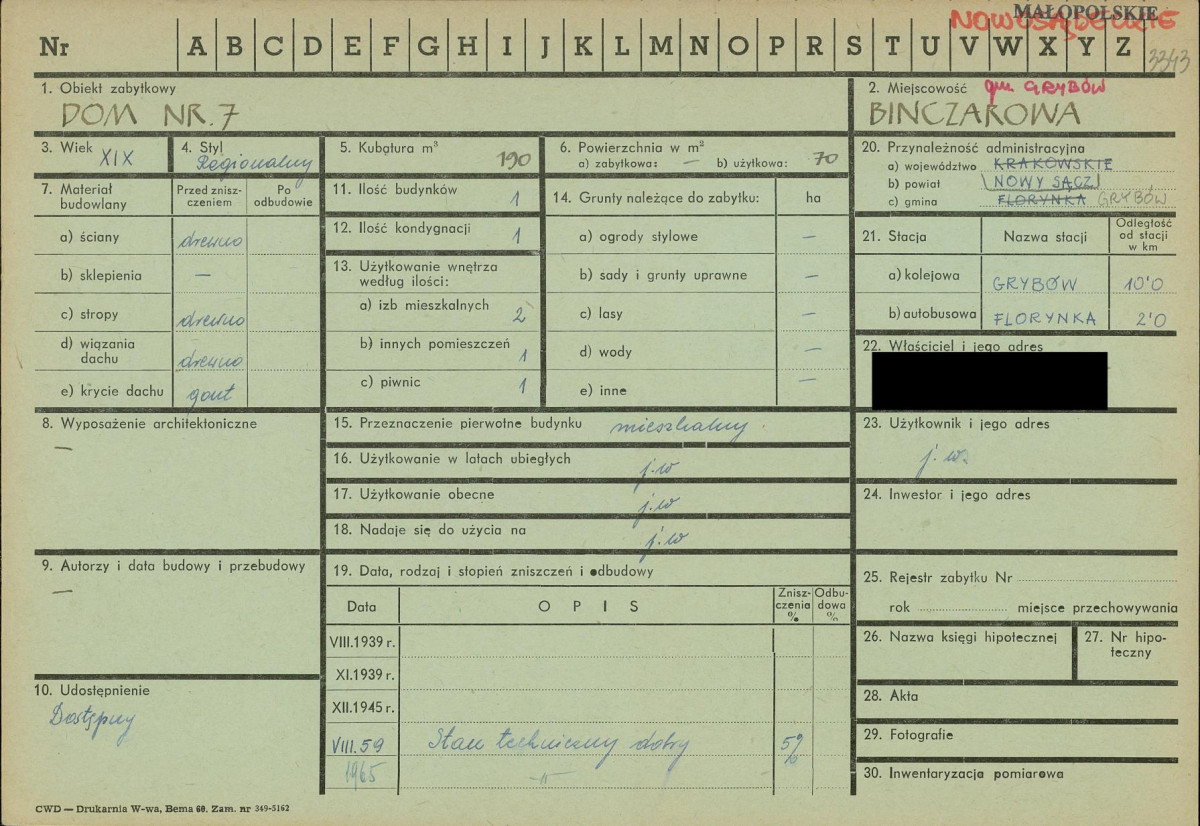 MAŁOPOLSKIE
NOWOSĄDECKIE
Nr A B C D E F G H I J K L M N O P R S T U V W X Y Z
3343
1. Obiekt zabytkowy
DOM NR. 7
2. Miejscowość gm. GRYBÓW
BINCZAROWA
3. Wiek XIX
4. Styl Regionalny
5. Kubatura m³ 190
6. Powierzchnia w m²
a) zabytkowa: — b) użytkowa: 70
7. Materiał budowlany
Przed zniszczeniem
Po odbudowie
a) ściany drewno
b) sklepienia —
c) stropy drewno
d) wiązania dachu drewno
e) krycie dachu gont
11. Ilość budynków 1
12. Ilość kondygnacji 1
13. Użytkowanie wnętrza według ilości:
a) izb mieszkalnych 2
b) innych pomieszczeń 1
c) piwnic 1
14. Grunty należące do zabytku: ha
a) ogrody stylowe —
b) sady i grunty uprawne —
c) lasy —
d) wody —
e) inne —
20. Przynależność administracyjna
a) województwo KRAKOWSKIE
b) powiat NOWY SĄCZ
c) gmina FLORYNKA GRYBÓW
21. Stacja Nazwa stacji Odległość od stacji w km
a) kolejowa GRYBÓW 10'0
b) autobusowa FLORYNKA 2'0
22. Właściciel i jego adres
8. Wyposażenie architektoniczne
—
15. Przeznaczenie pierwotne budynku mieszkalny.
16. Użytkowanie w latach ubiegłych j.w
17. Użytkowanie obecne j.w
18. Nadaje się do użycia na j.w
23. Użytkownik i jego adres
j. w.
24. Inwestor i jego adres
9. Autorzy i data budowy i przebudowy
—
10. Udostępnienie
Dostępny
19. Data, rodzaj i stopień zniszczeń i odbudowy
Data OPIS Zniszczenia % Odbudowa %
VIII.1939 r.
XI.1939 r.
XII.1945 r.
VIII.59 Stan techniczny dobry 5%
1965 -"-
25. Rejestr zabytku Nr
rok miejsce przechowywania
26. Nazwa księgi hipotecznej
27. Nr hipoteczny
28. Akta
29. Fotografie
30. Inwentaryzacja pomiarowa
CWD — Drukarnia W-wa, Bema 60. Zam. nr 349-5162